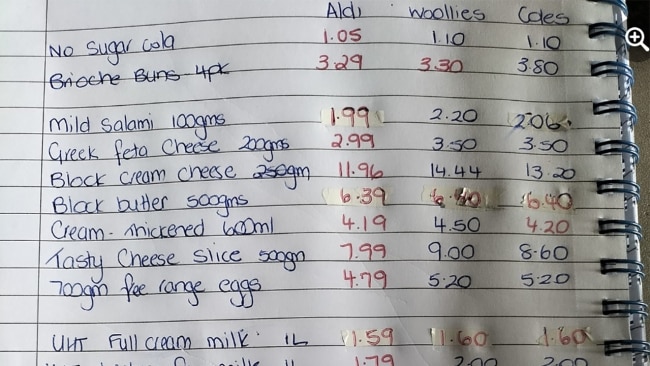 Aldi woollies Coles
No Sugar Cola 1.05 1.10 1.10
Brioche Buns 4pk 3.29 3.30 3.80
Mild Salami 100gms 1.99 2.20 2.06
Greek feta Cheese 200gms 2.99 3.50 3.50
Block Cream Cheese 250gm 11.96 14.44 13.20
Block butter 500gms 6.39 6.40
Cream - Thickened 600ml 4.19 4.50 4.20
Tasty Cheese Slice 500gm 7.99 9.00 8.60
700gm free range eggs 4.79 5.20 5.20
UHT Full cream milk. 1L 1.59 1.60 1.60
1.79 2.00 2.00